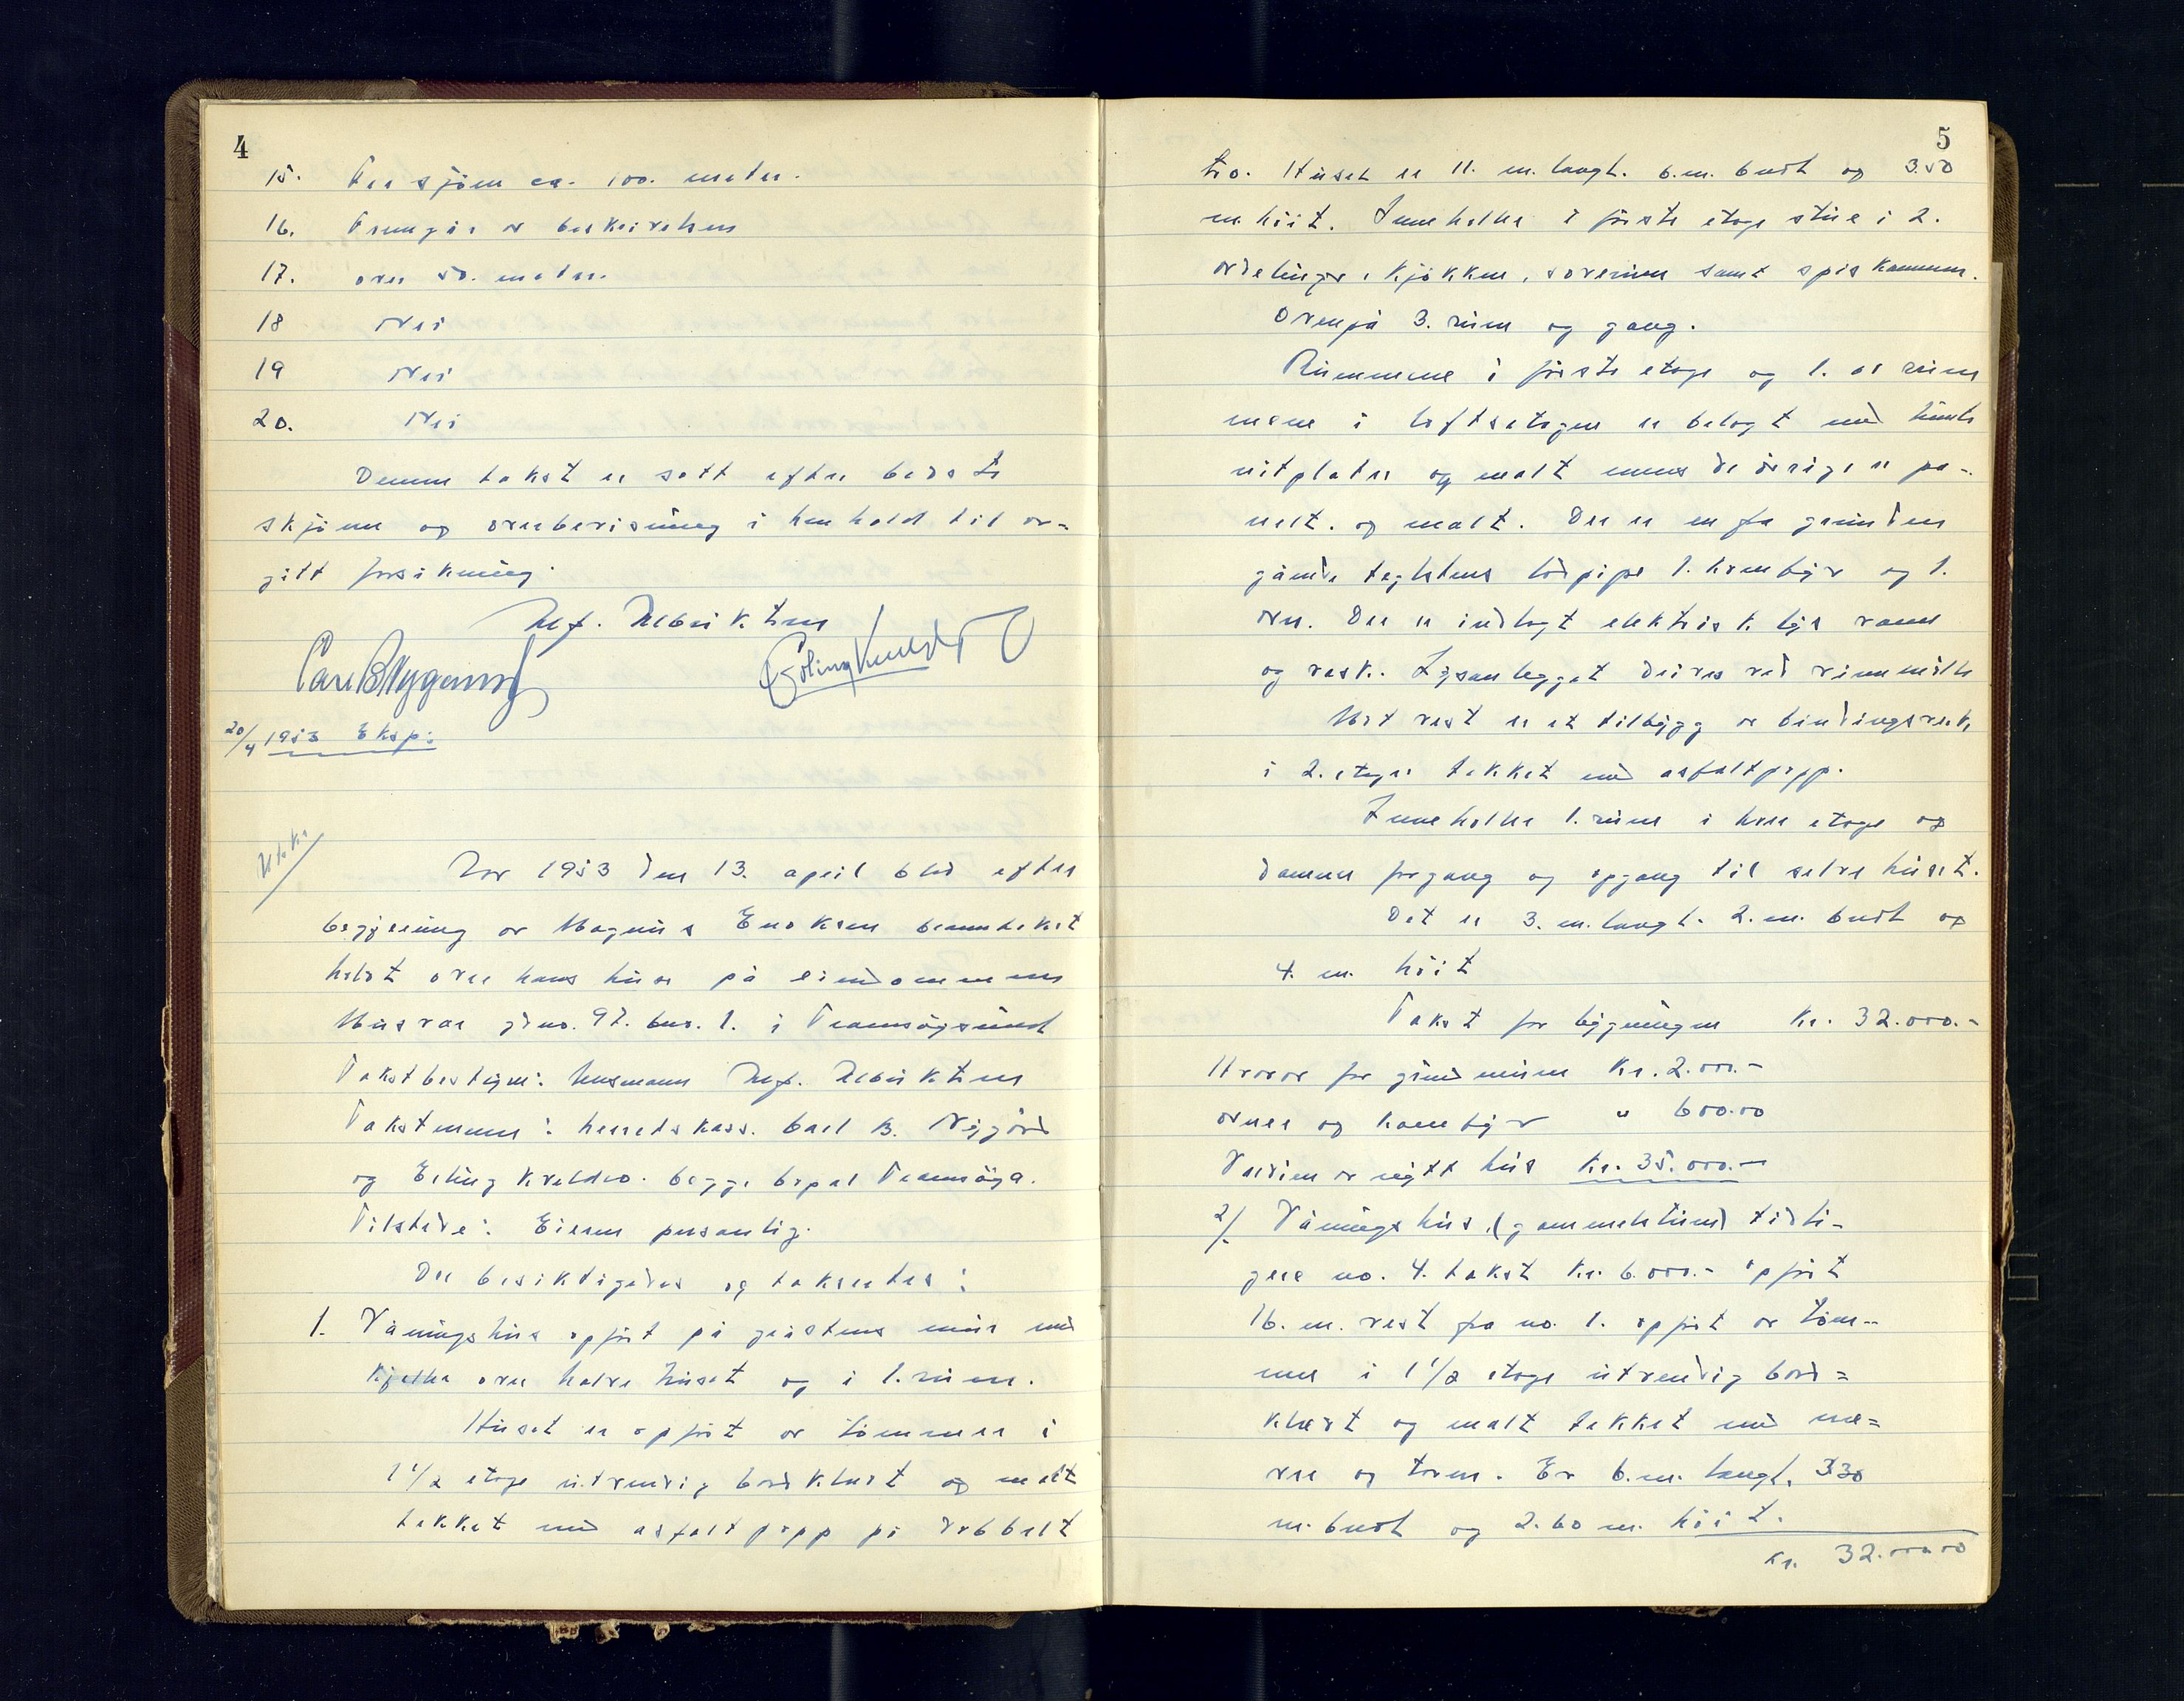 4
15. Fra sjøen ca. 100. meter.
16. Fremgår av beskrivelsen
17. over 50. meter.
18 Nei
19 Nei
20. Nei
Denne takst er satt efter beste
skjønn og overbevisning i henhold til av=
gitt forsikring.
Alf. Albriktsen
Carl B Nygaard Erling Kveldro
20/4 1953 Eksp:
Utskr.
Aar 1953 den 13. april blev efter
begjæring av Magnus Enoksen branntakst
holdt over hans huse på eiendommen
Musvær gårdno. 97. bno. 1. i Tromsøysund
Takstbestyrer: lensmann Alf. Albriktsen
Takstmenn: herredskass. Carl B. Nygård
og Erling Kveldro. begge bopæl Tromsøya.
Tilstede: Eieren personlig.
Der besiktigedes og taksertes:
1. Våningshus opført på gråstens mur med
kjeller over halve huset og i 1. rum.
Huset er opført av tømmer i
1 1/2 etage utvendig bordklædt og malt
tekket med asfalt papp på dobbelt
5
tro. Huset er 11. m. langt. 6. m. bredt og 3.50
m. høit. Inneholder i første etage stue i 2.
avdelinger, kjøkken, soverum samt spiskammer.
Ovenpå 3. rum og gang.
Rummene i første etage og 1. av rum
mene i loftsetagen er belagt med
plater og malt mens de øvrige er pa-
nelt. og malt. Der er en fra grunden
gående teglstens lodpipe 1. komfyr og 1.
ovn. Der er indlagt elektrisk lys vann
og vask. Lysanlegget drives ved vinnmølle
Mot vest er et tilbygg av bindingsverk
i 2. etager tekket med asfaltpapp.
Inneholder 1. rum i hver etage og
danner forgang og opgang til selve huset.
Det er 3. m. langt. 2. m. bredt og
4. m. høit
Takst for bygningen Kr. 32.000.-
Hvorav for grundmuren Kr. 2.000.-
ovner og komfyr " 600.00
Verdien av nytt hus Kr. 35.000.-
2/. Våningshus, (gammelstuen) tidli-
gere no. 4. takst Kr. 6.000.- opført
16. m. vest fra no. 1. opført av tøm-
mer i 1 1/2 etage utvendig bord=
klædt og malt tekket med næ=
ver og torv. Er 6. m. langt. 3.30
m. bredt og 2.60 m. høit.
Kr. 32.000.00